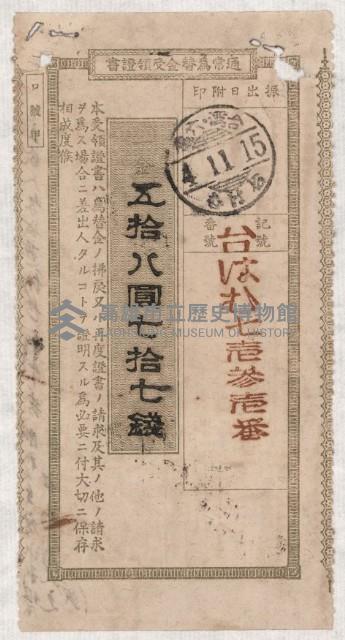 通常爲替金受領證書
振出日附印
臺灣
4 11 15
記號
番號
台はむ七壱參壱番
五拾八圓七拾七錢
本受領證書ハ爲替金ノ拂戾又ハ再度證書ノ請求及其ノ他ノ請求
ヲ爲ス場合ニ差出人タルコトヲ證明スル爲必要ニ付大切ニ保存
相成度候
高雄市立歷史博物館
KAOHSIUNG MUSEUM OF HISTORY